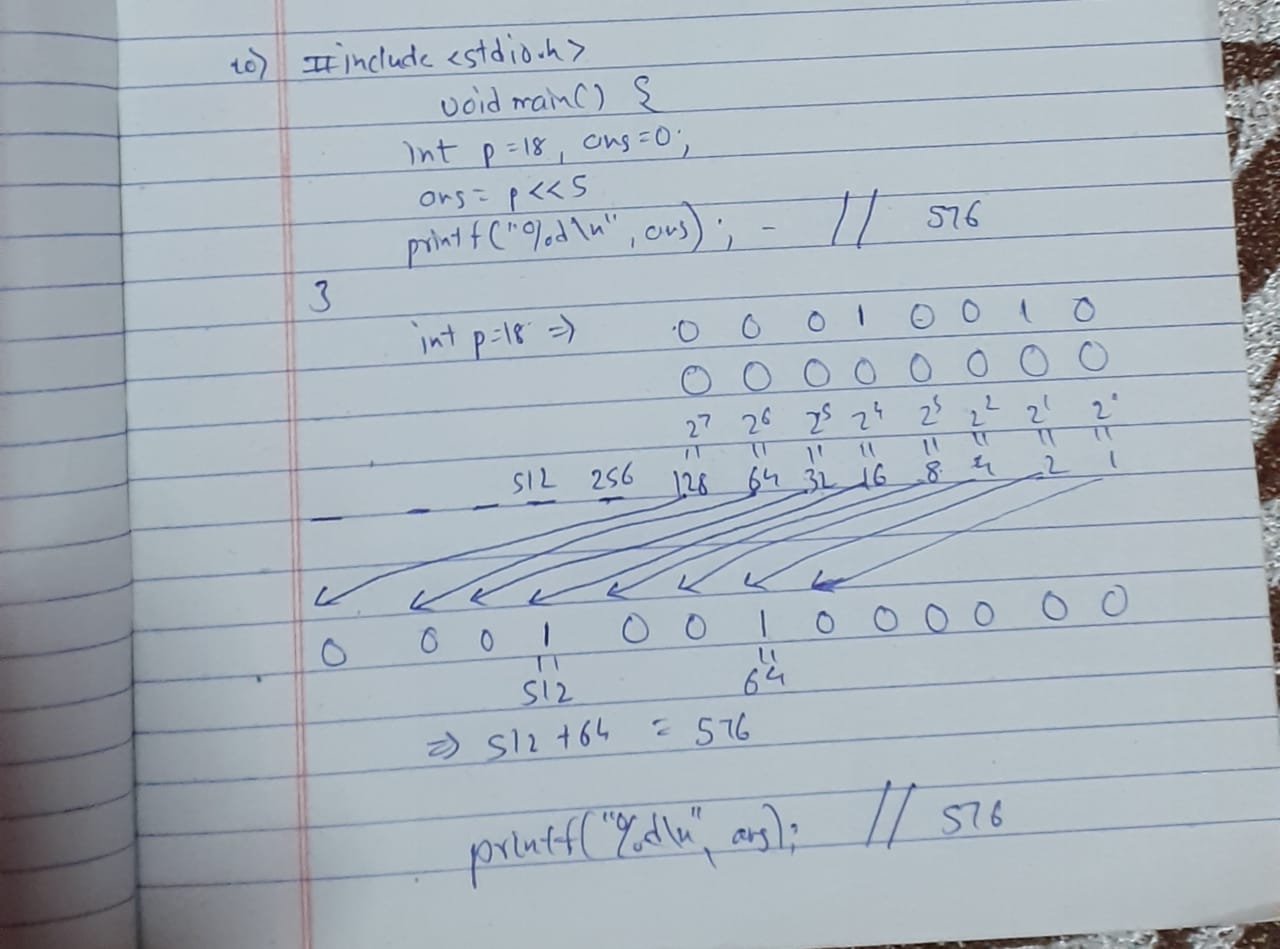 10) #include <stdio.h>
void main() {
int p=18, ans=0;
ans= p<<5
printf("%d\n", ans); - // 576
}
int p=18 => 0 0 0 1 0 0 1 0
0 0 0 0 0 0 0 0
2⁷ 2⁶ 2⁵ 2⁴ 2³ 2² 2¹ 2⁰
" " " " " " " "
512 256 128 64 32 16 8 4 2 1
0 0 0 1 0 0 1 0 0 0 0 0 0
" "
512 64
=> 512 + 64 = 576
printf("%d\n", ans); // 576